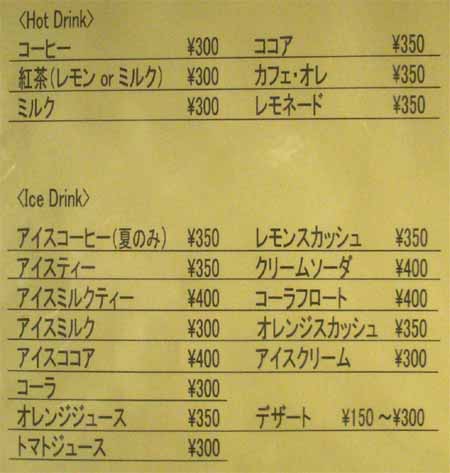 〈Hot Drink〉
コーヒー ¥300 ココア ¥350
紅茶(レモン or ミルク) ¥300 カフェ・オレ ¥350
ミルク ¥300 レモネード ¥350
〈Ice Drink〉
アイスコーヒー(夏のみ) ¥350 レモンスカッシュ ¥350
アイスティー ¥350 クリームソーダ ¥400
アイスミルクティー ¥400 コーラフロート ¥400
アイスミルク ¥300 オレンジスカッシュ ¥350
アイスココア ¥400 アイスクリーム ¥300
コーラ ¥300
オレンジジュース ¥350 デザート ¥150 ～¥300
トマトジュース ¥300